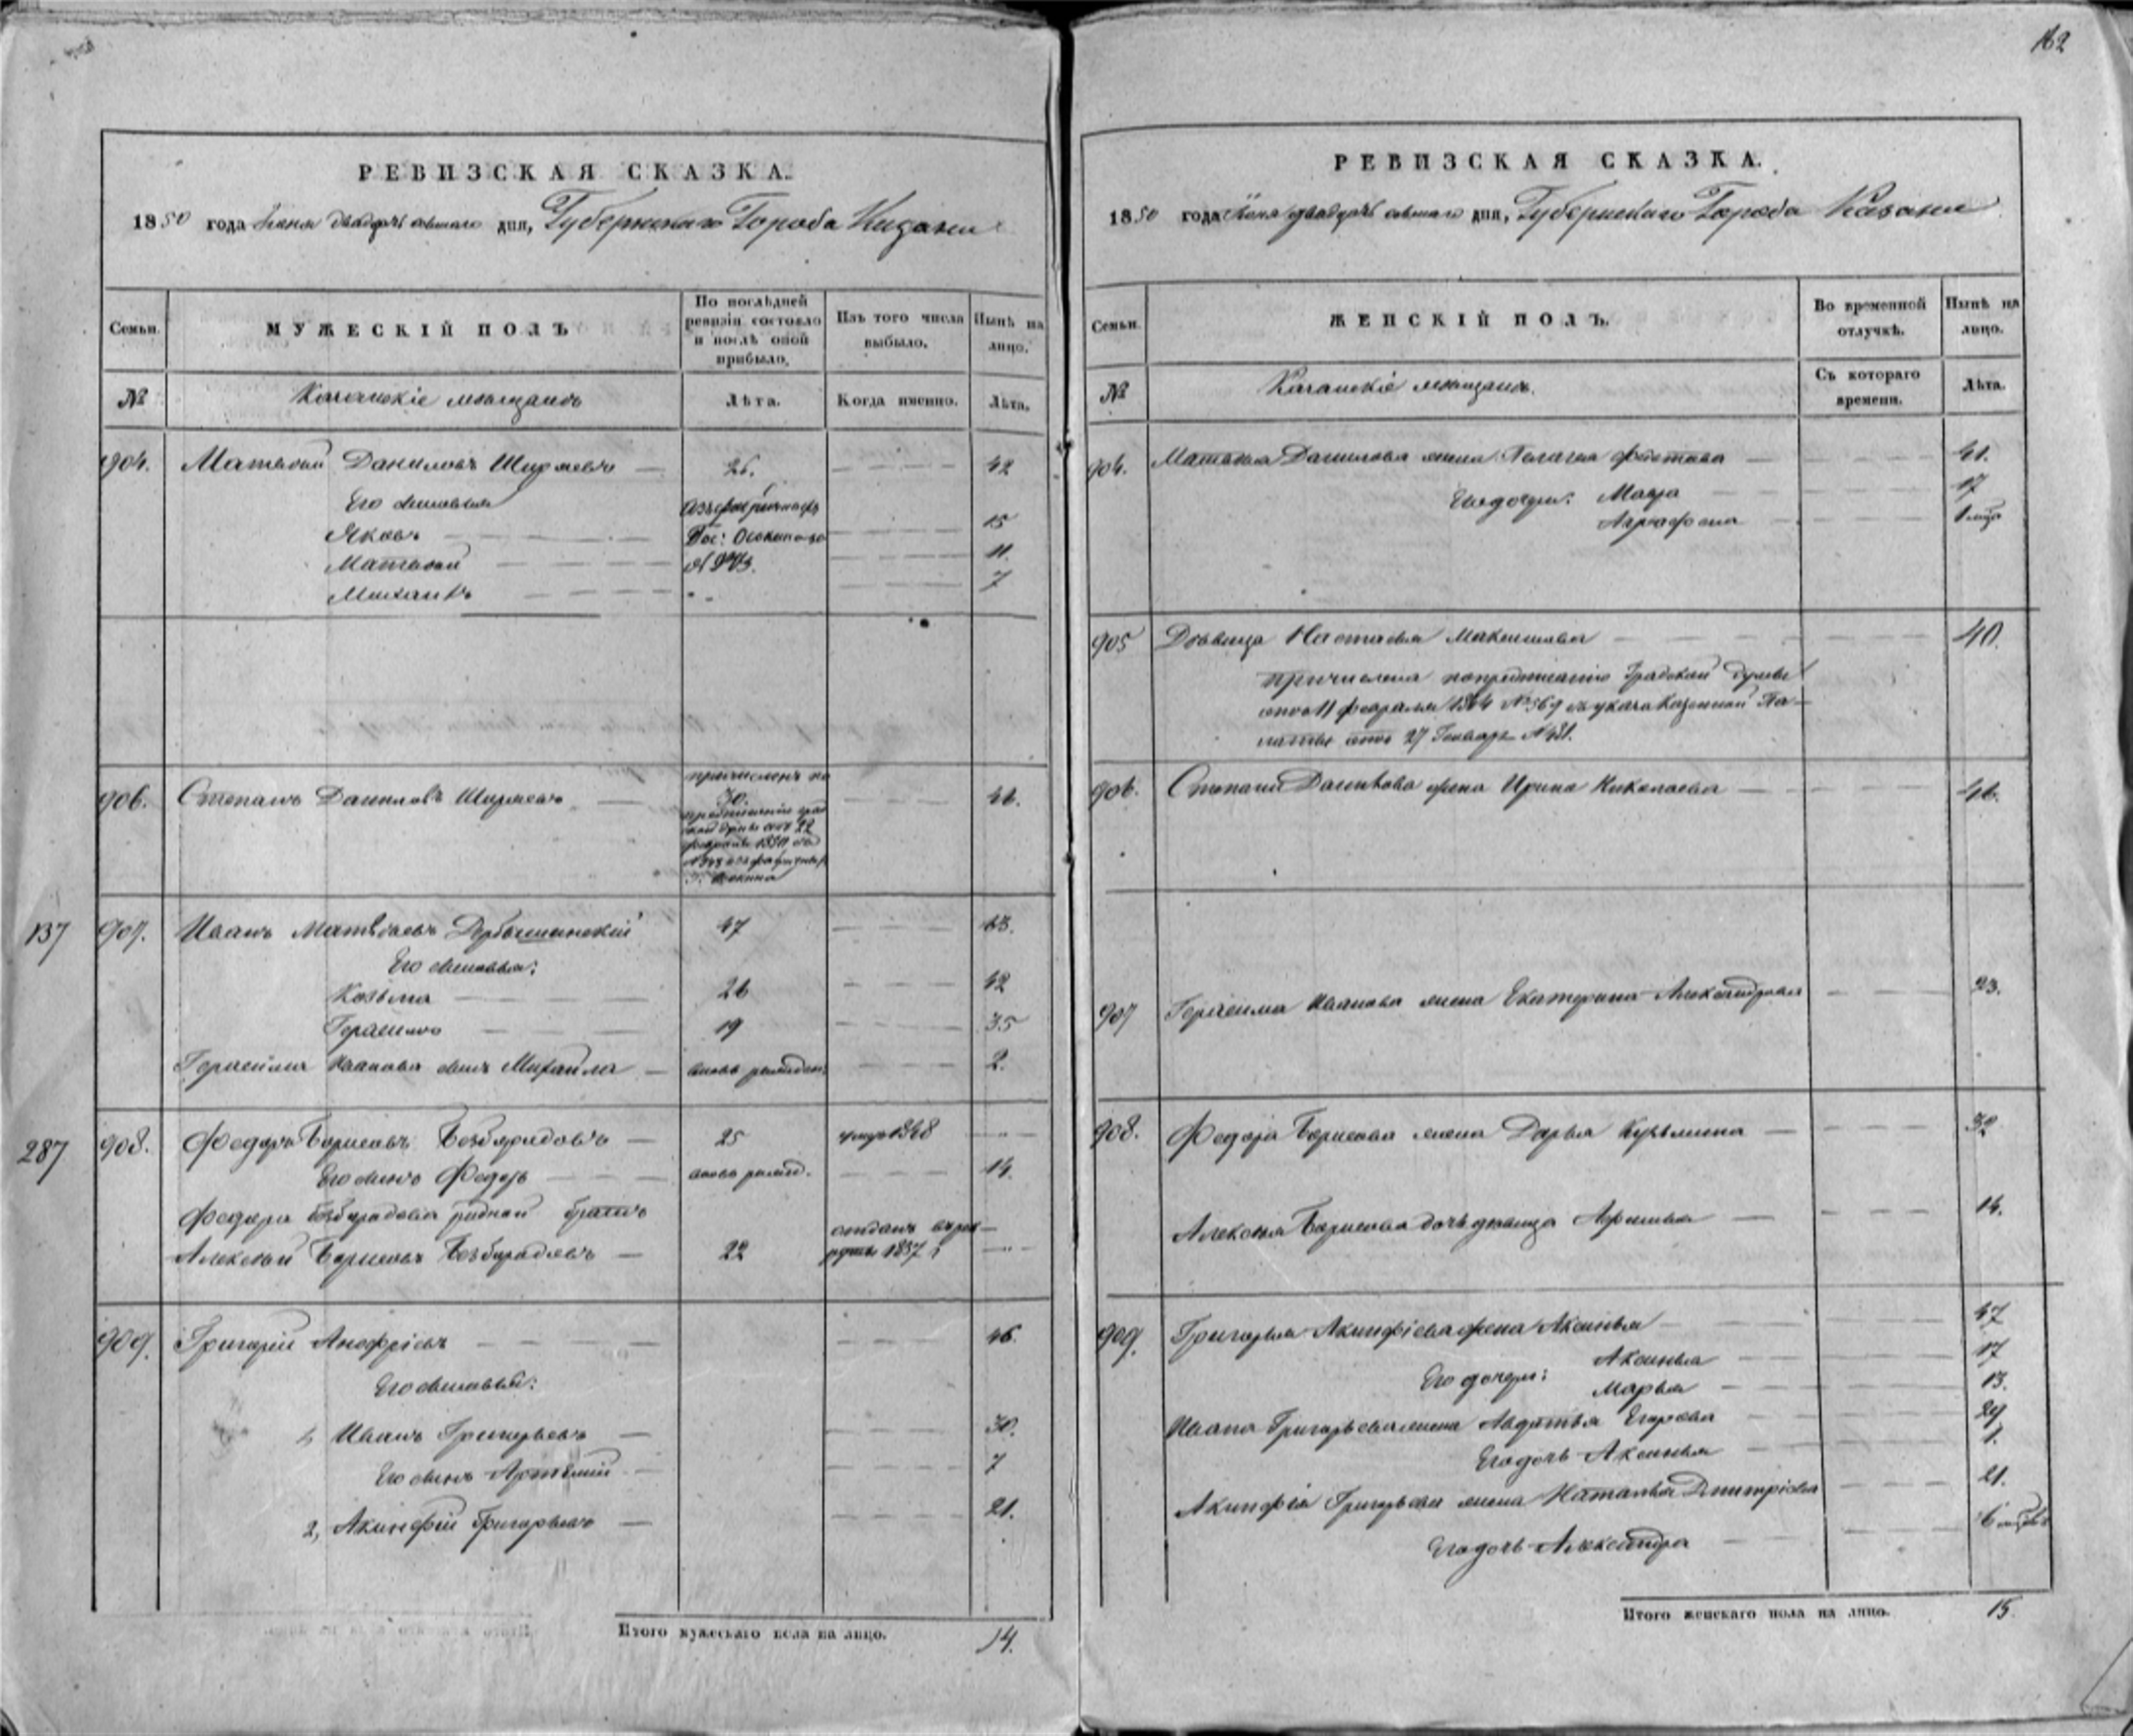 РЕВИЗСКАЯ СКАЗКА.
1850 года дня, Губернскаго Города Казани
Семьи.
МУЖЕСКІЙ ПОЛЪ
По послѣдней ревизіи состояло и послѣ оной прибыло.
Изъ того числа выбыло.
Нынѣ на лицо.
№
Казанскіе мѣщане
Лѣта.
Когда именно.
Лѣта.
904. Матвей Даниловъ 26. 42
Его сыновья
Яковъ 15
Матвей 11.
Михаилъ 7
906. Степанъ Даниловъ 30.
причисленъ по
137 907. Иванъ Матвѣевъ 47 63.
Его сыновья:
Козьма 26 42
Герасимъ 19 35
Герасима Иванова сынъ Михаила вновь рожден: 2.
287 908. Федоръ Борисовъ 25 умеръ 1848
Его сынъ Федоръ вновь рожд. 14.
Федора родной братъ
Алексей Борисовъ 22 отданъ в рекруты 1837
909. Григорій 46.
Его сыновья:
1, Иванъ Григорьевъ 30.
Его сынъ Артемий 7
2, Акинфий Григорьевъ 21.
Итого мужескаго пола на лицо. 14.
162
РЕВИЗСКАЯ СКАЗКА.
1850 года дня, Губернскаго Города Казани
Семьи.
ЖЕНСКІЙ ПОЛЪ.
Во временной отлучкѣ.
Нынѣ на лицо.
№
Казанскіе мѣщане.
Съ котораго времени.
Лѣта.
904. Матвея Данилова жена Пелагея 41.
Его дочери: Мавра 17
Аграфена
905 Девица Настасья Максимова 40.
причислена по предписанию Градской думы
от 11 февраля 1844 № 569 указа Казенной Па-
латы от 27 Генваря
906. Степана Данилова жена Ирина Николаева 46.
907 Герасима Иванова жена Екатерина Александрова 23.
908. Федора Борисова жена Дарья Кузьмина 32
Алексея Борисова дочь девица 14.
909. Григорья Акинфіева жена Аксинья 47
Его дочери: Аксинья 17
Марья 13.
Ивана Григорьева жена Авдотья Егорова 29
Его дочь Аксинья 1.
Акинфія Григорьева жена Наталья Дмитріева 21.
Его дочь Александра
Итого женскаго пола на лицо. 15.